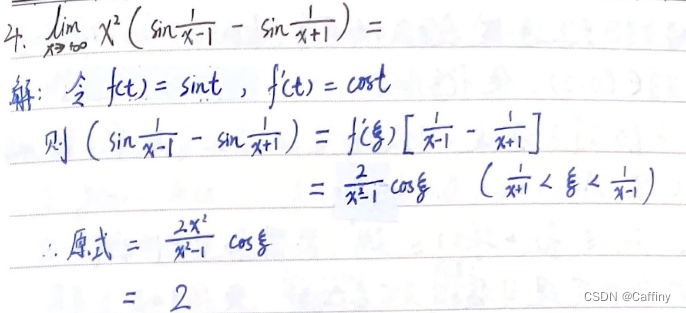 4. lim x→+∞ x² ( sin 1/(x-1) - sin 1/(x+1) ) =
解: 令 f(t) = sint , f'(t) = cost
则 ( sin 1/(x-1) - sin 1/(x+1) ) = f'(ξ) [ 1/(x-1) - 1/(x+1) ]
= 2/(x²-1) cosξ ( 1/(x+1) < ξ < 1/(x-1) )
∴ 原式 = 2x²/(x²-1) cosξ
= 2
CSDN @Caffiny